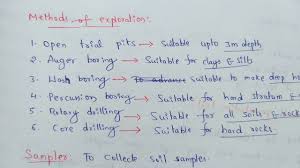 Methods of exploration:
1. Open trial pits → Suitable upto 3m depth
2. Auger boring → Suitable for clays & silts
3. Wash boring → To advance suitable to make deep
4. Percussion boring → Suitable for hard stratum &
5. Rotary drilling → Suitable for all soils & rocks
6. Core drilling → Suitable for hard rocks.
Sampler: To collect soil samples.